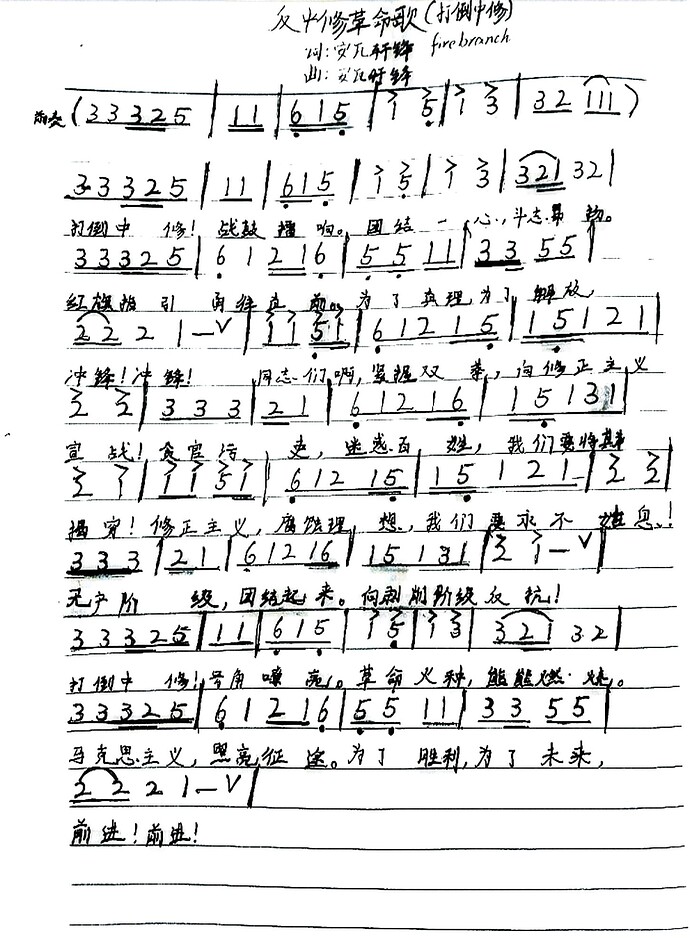 反中修革命歌(打倒中修)
词:安瓦轩锋 firebranch
曲:安瓦轩锋
前奏 (3 3 3 2 5 | 1 1 | 6 1 5 | 1 5 | 1 3 | 3 2 1 1 1)
3 3 3 2 5 | 1 1 | 6 1 5 | 1 5 | 1 3 | 3 2 1 3 2 |
打倒中 修! 战鼓擂 响。团结一 心,斗志昂 扬。
3 3 3 2 5 | 6 1 2 1 6 | 5 5 1 1 | 3 3 5 5 |
红旗指 引 勇往直 前。为了真理,为了 解放,
2 2 2 1 — V | 1 1 5 1 | 6 1 2 1 5 | 1 5 1 2 1 |
冲锋!冲锋! 同志们啊,紧握双 拳,向修正主义
2 2 | 3 3 3 | 2 1 | 6 1 2 1 6 | 1 5 1 3 1 |
宣 战!贪官污 吏,迷惑百 姓,我们要将其
2 1 | 1 1 5 1 | 6 1 2 1 5 | 1 5 1 2 1 | 2 2 |
揭穿!修正主义,腐蚀理 想,我们 要永不 息!
3 3 3 | 2 1 | 6 1 2 1 6 | 1 5 1 3 1 | 2 1 — V |
无产阶 级,团结起 来。向剥削阶级反 抗!
3 3 3 2 5 | 1 1 | 6 1 5 | 1 5 | 1 3 | 3 2 1 3 2 |
打倒中 修!号角嘹 亮。革命火种,熊熊燃 烧。
3 3 3 2 5 | 6 1 2 1 6 | 5 5 1 1 | 3 3 5 5 |
马克思主义,照亮征 途。为了 胜利,为了 未来,
2 2 2 1 — V |
前进!前进!